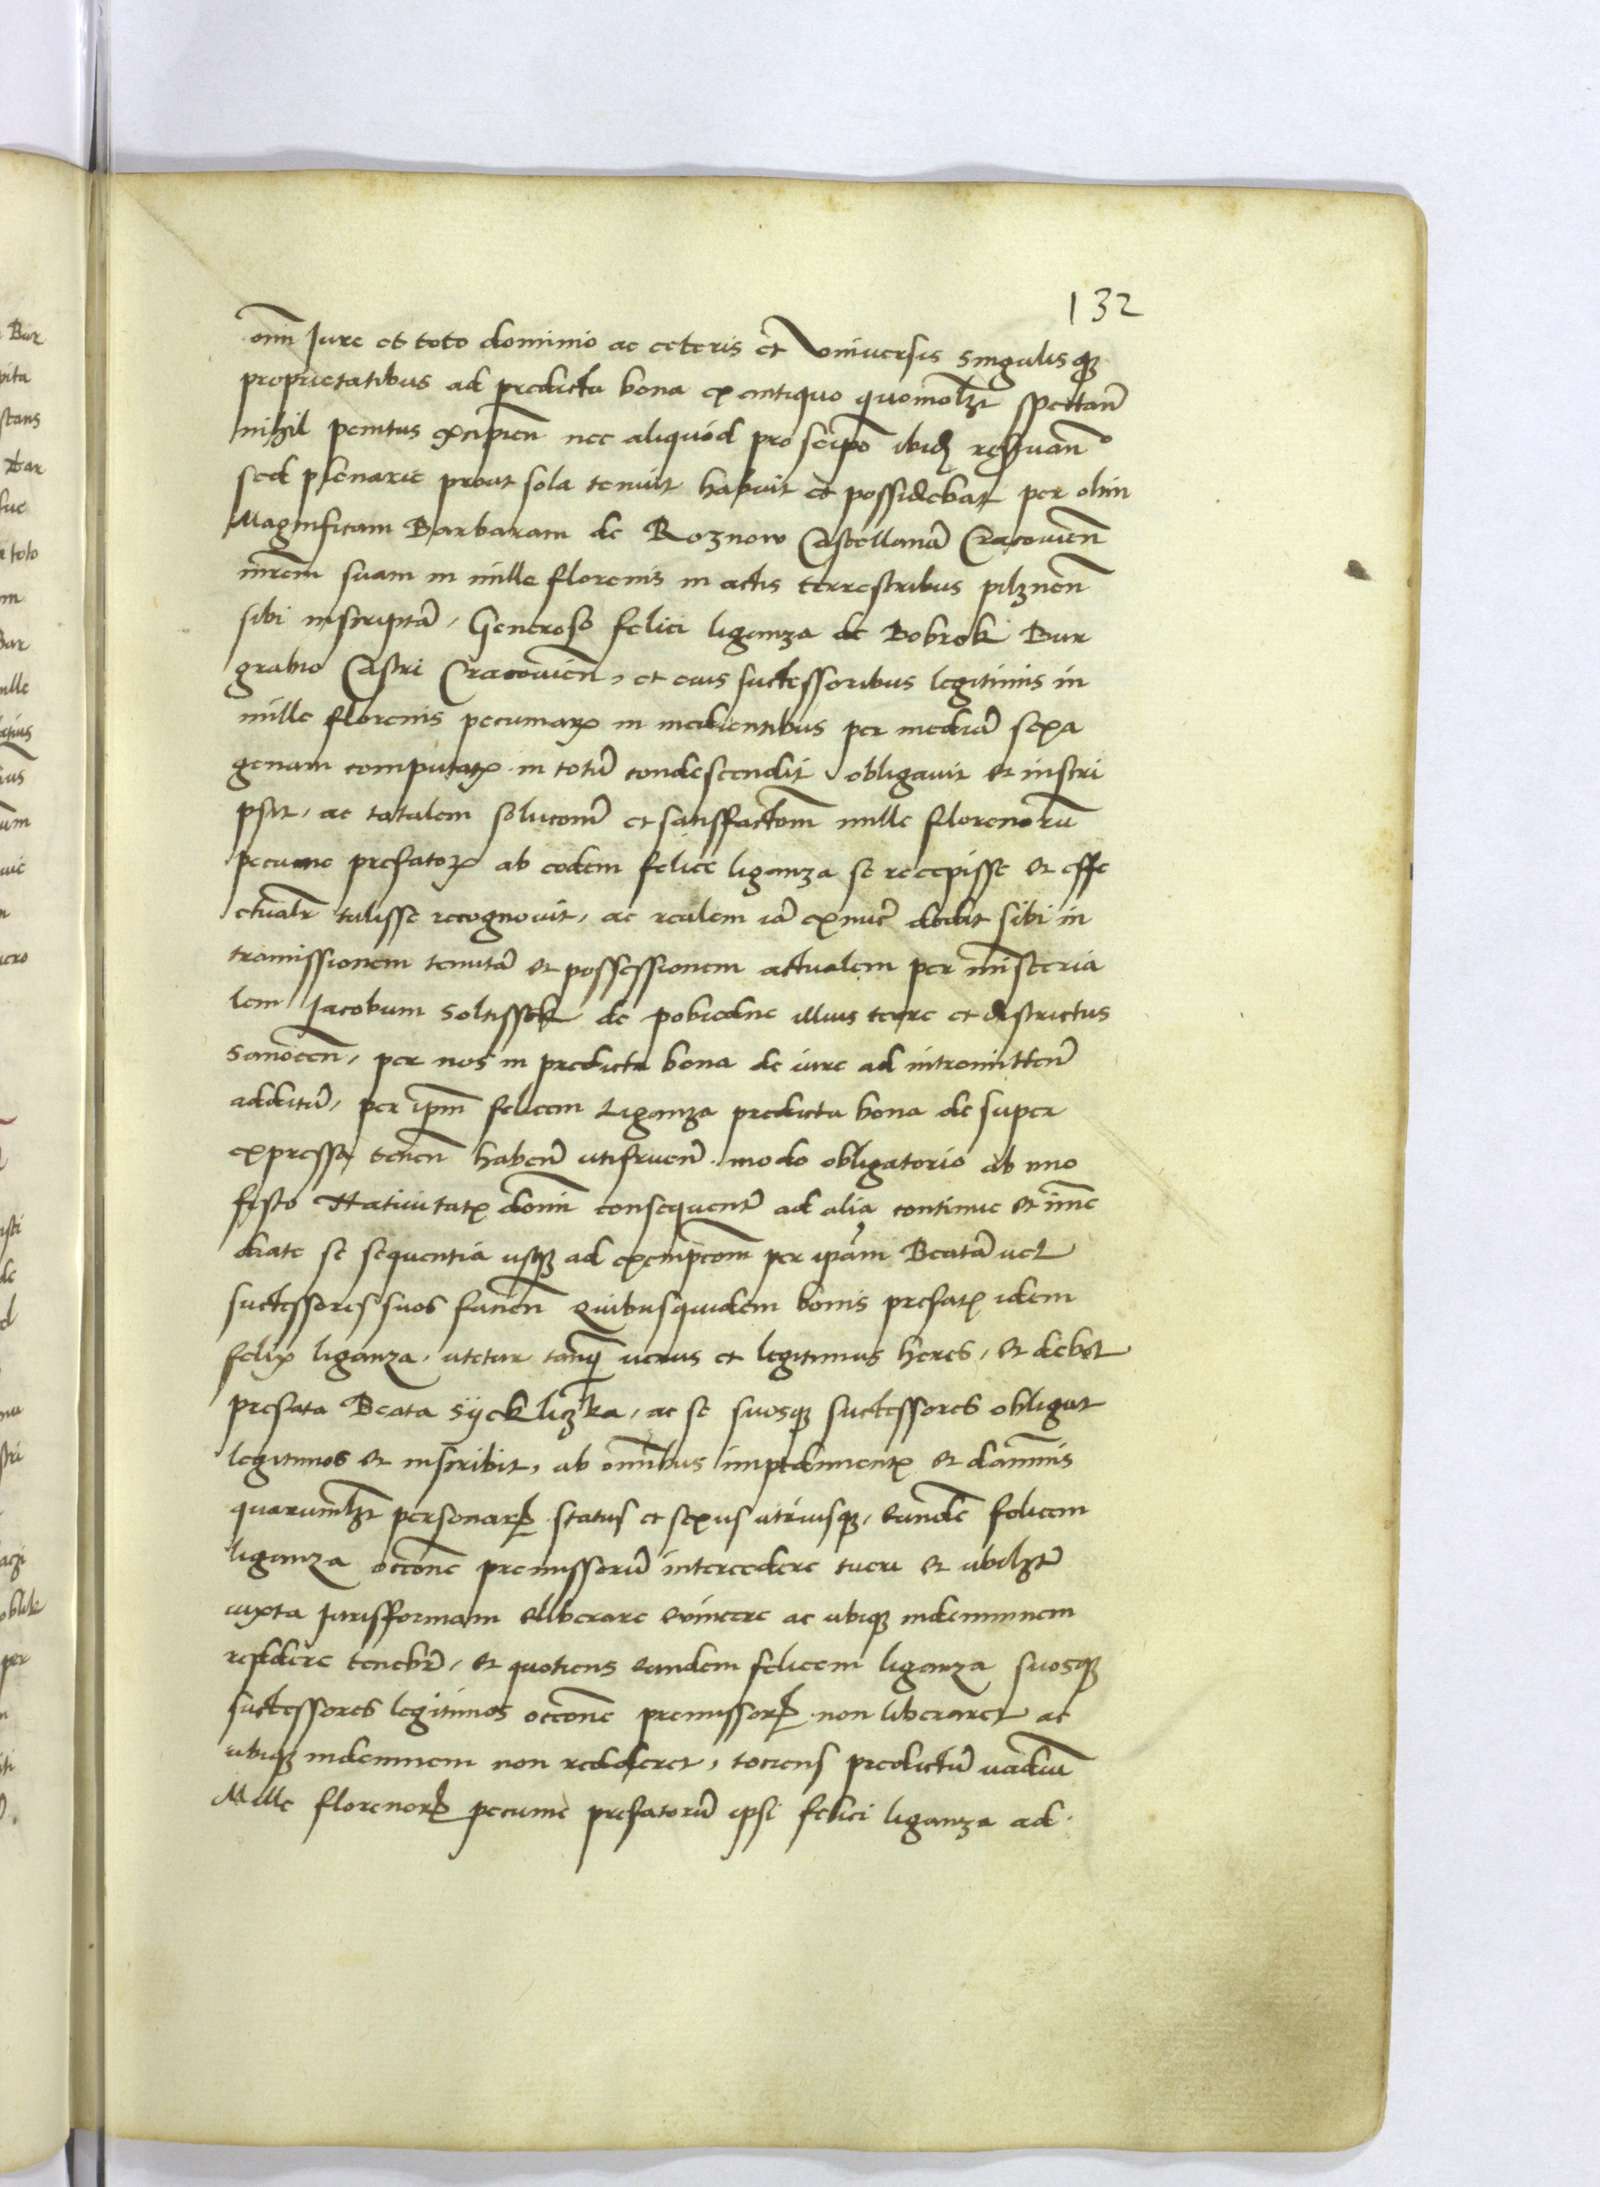 132
om̅i Jure et toto dominio ac ceteris et Vniuersis singulisq₃
proprietatibus ad predicta bona ex antiquo quomol₃t spectan̅
nihil penitus excipien̅ nec aliquod pro seip̅o ibid reseruan̅
sed plenarie prout sola tenuit habuit et possidebat per olim
Magnificam Barbaram de Roznow Castellana̅ Cracouien̅
m̅rem suam in mille florenis in actis terrestribus pilznen̅
sibi inscripta̅, Generoso felici liganza de Bobrek Bur
grabio Castri Cracouien̅, et eius successoribus legitimis in
mille florenis pecuniarꝝ in medientibus per media̅ sexa
genam computatꝝ in totu̅ condescendit obligauit et inscri
psit, ac totalem soluc̅onem et satisfacc̅om mille florenoru̅
pecunie prefatorꝝ ab eodem felice liganza se recepisse et effe
ctualr̅ tulisse recognouit, ac realem ia̅ exnu̅c dedit sibi in
tromissionem tenuta̅ et possessionem actualem per minis̅teria
lem Jacobum Soltissek de pobiedne illius terre et districtus
Sanocen̅, per nos in predicta bona de iure ad intromitten̅
additu̅, per ip̅m felicem Liganza predicta bona de super
expressa tenen̅ haben̅ utifruen̅ modo obligatorio ab vno
festo Natiuitatꝭ domi̅ consequent̅ ad alia continue et im̅e
diate se sequentia usq₃ ad exempc̅om per ipa̅m Beata̅ uel
successores suos fac̅ien̅ Quibusquidem bonis prefatꝭ idem
felix liganza, utetur tanq̅ uerus et legitimus heres, et debet
prefata Beata Syekliczka, ac se suosq₃ successores obligat
legitimos et inscribit, ab om̅ibus impedimentꝭ et dam̅nis
quarumli₃t personarꝝ status et sexus utriusq₃, eunde̅ felicem
liganza occ̅one premissoru̅ intercedere tueri et ubili₃t̅
iuxta Jurisformam eliberare euincere ac ubiq₃ indemnnem
reddere tenebr̅, et quotiens eundem felicem liganza suosq₃
successores legitimos occ̅one premissorꝝ non liberaret ac
ubiq₃ indemnem non redderet, tociens predictu̅ uadiu̅
Mille florenorꝝ pecunie prefatoru̅ ipsi felici liganza ad